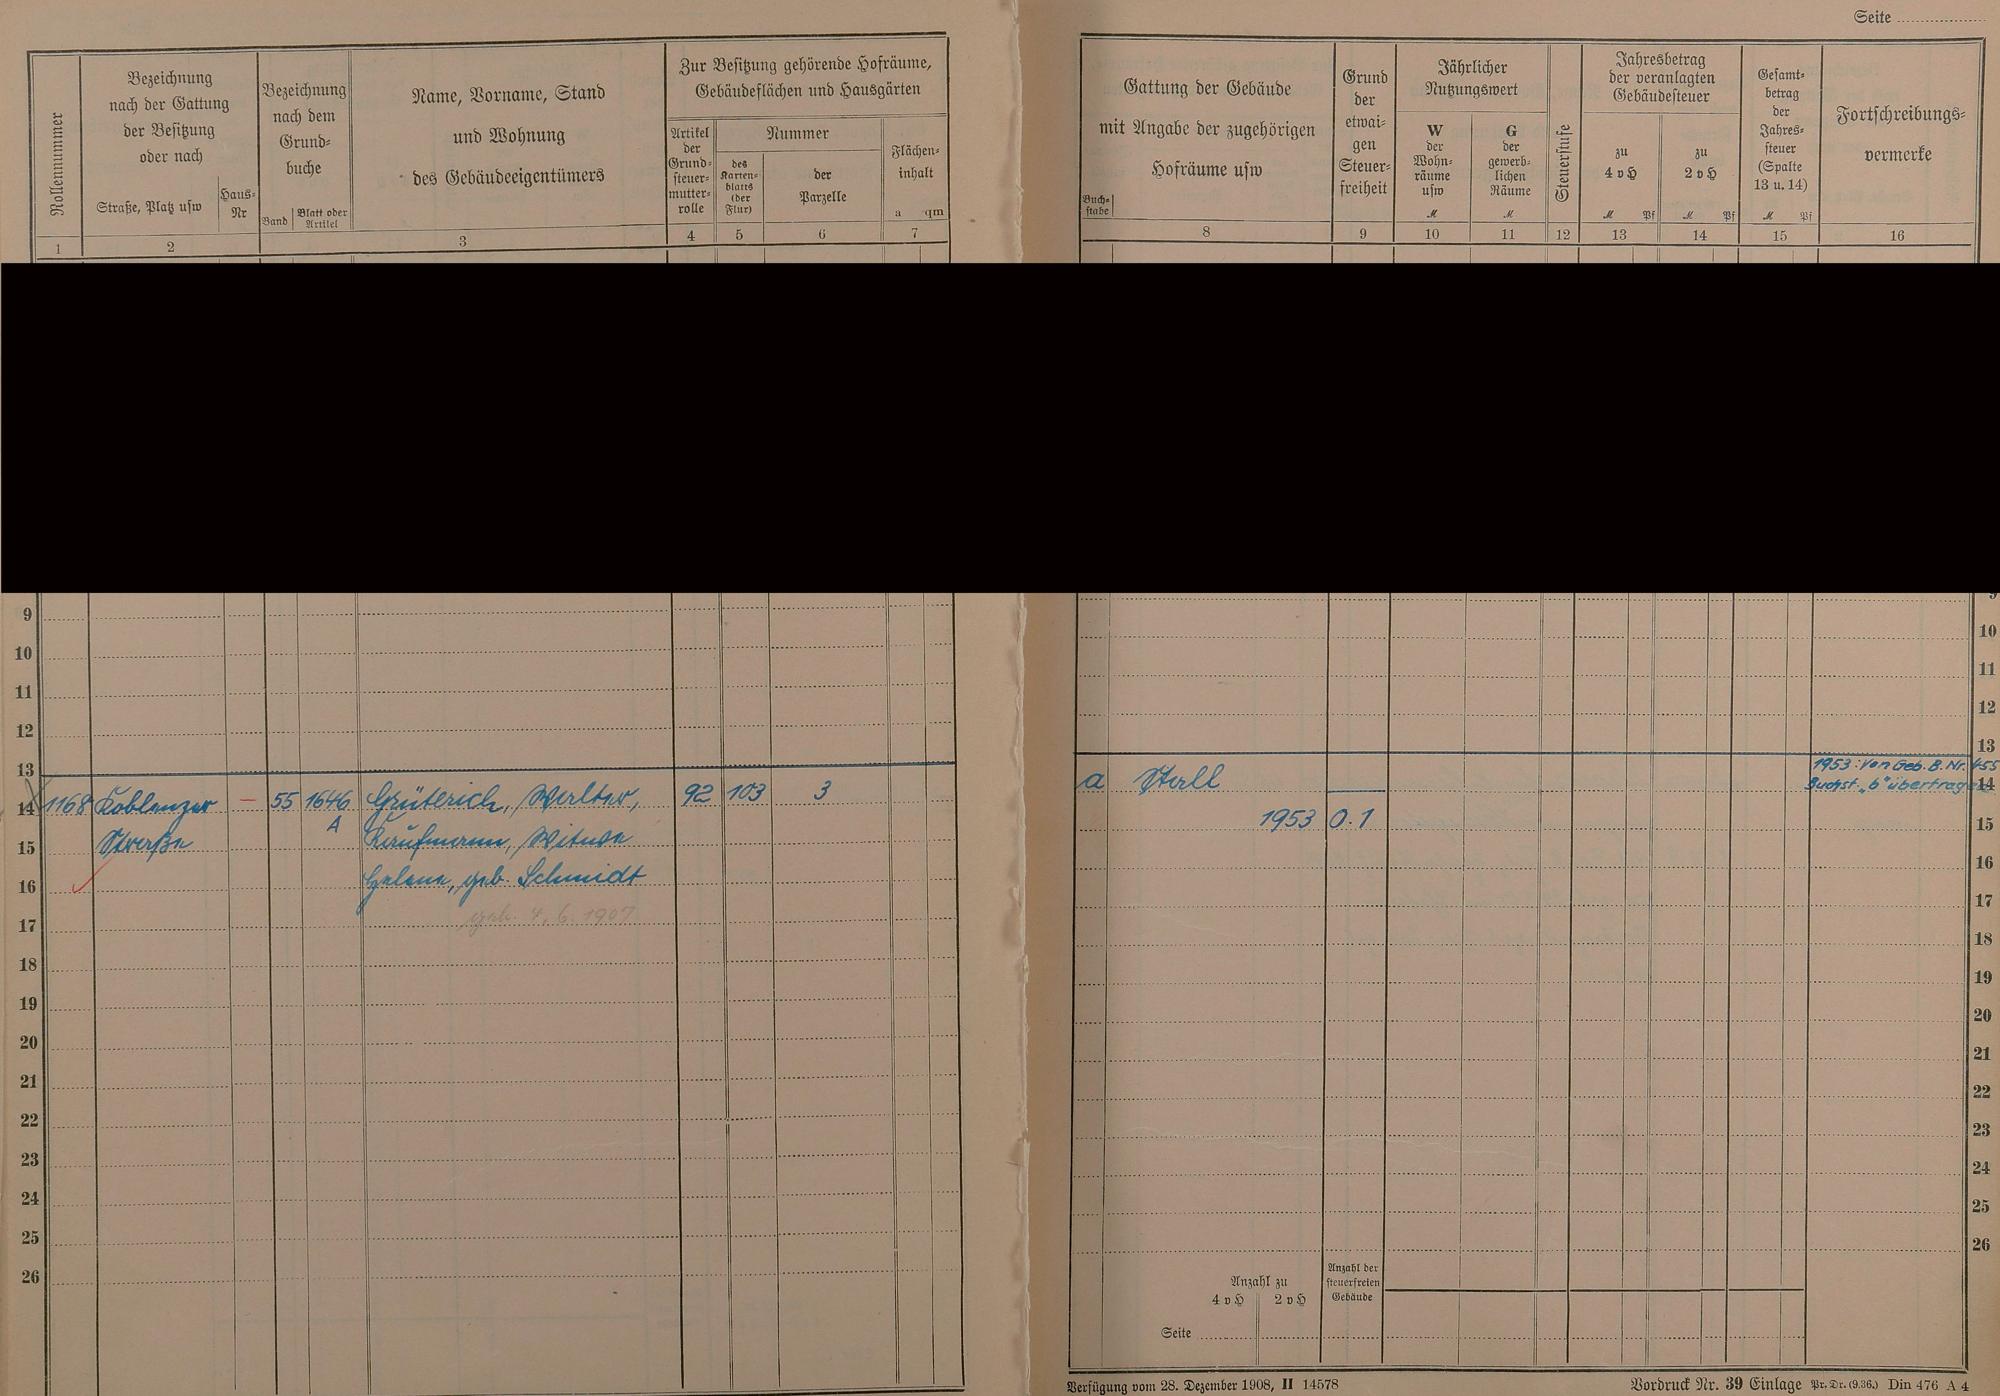 Seite
Rollennummer
Bezeichnung
nach der Gattung
der Besitzung
oder nach
Straße, Platz usw
Haus-
Nr
Bezeichnung
nach dem
Grund-
buche
Band
Blatt oder
Artikel
Name, Vorname, Stand
und Wohnung
des Gebäudeeigentümers
Zur Besitzung gehörende Hofräume,
Gebäudeflächen und Hausgärten
Artikel
der
Grund-
steuer-
mutter-
rolle
Nummer
des
Karten-
blatts
(der
Flur)
der
Parzelle
Flächen-
inhalt
a qm
1 2 3 4 5 6 7
Buch-
stabe
Gattung der Gebäude
mit Angabe der zugehörigen
Hofräume usw
Grund
der
etwai-
gen
Steuer-
freiheit
Jährlicher
Nutzungswert
W
der
Wohn-
räume
usw
M
G
der
gewerb-
lichen
Räume
M
Steuerstufe
Jahresbetrag
der veranlagten
Gebäudesteuer
zu
4 v H
M Pf
zu
2 v H
M Pf
Gesamt-
betrag
der
Jahres-
steuer
(Spalte
13 u. 14)
M Pf
Fortschreibungs-
vermerke
8 9 10 11 12 13 14 15 16
9 9
10 10
11 11
12 12
13 13
1953: Von Geb. B. Nr. 455
14 1168 Koblenzer – 55 1646 Grüterich, Walter, 92 103 3 a Stall Buchst. „b" übertrag 14
A
15 Straße Kaufmann, Witwe 1953 0.1 15
16 Helene, geb. Schmidt 16
geb. 4. 6. 1907
17 17
18 18
19 19
20 20
21 21
22 22
23 23
24 24
25 25
26 26
Anzahl zu
4 v H 2 v H
Anzahl der
steuerfreien
Gebäude
Seite
Verfügung vom 28. Dezember 1908, II 14578
Vordruck Nr. 39 Einlage Pr. Dr. (9.36.) Din 476 A 4